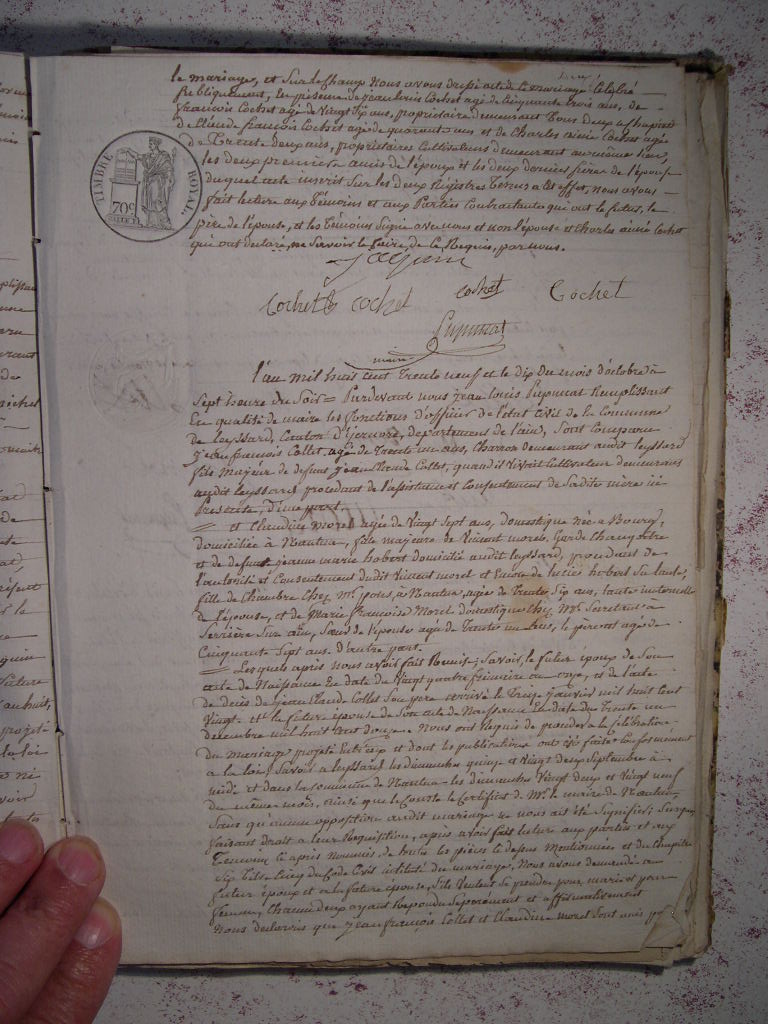 le mariage, et Sur le champ Nous avons dressé acte de ce mariage Célébré
publiquement, en présence de jean louis Cochet agé de Cinquante trois ans, de
francois Cochet agé de Vingt Six ans, propriétaires demeurant Tous deux a
de Claude francois Cochet agé de quarante ans et de Charles aimé Cochet agé
de Trente deux ans, propriétaires Cultivateurs demeurant au même lieu,
les deux premiers amis de l'époux et les deux derniers frères de l'épouse
duquel acte inscrit Sur les deux Régistres Tenus a Cet effet, nous avons
fait lecture aux Témoins et aux Parties Contractantes qui ont le futur, le
père de l'épouse, et les Témoins Signé avec nous et non l'épouse et Charles aimé Cochet
qui ont déclaré, ne Savoir le faire, de Ce Requis, par nous.
TIMBRE ROYAL
70c
Cochet Cochet Cochet Cochet
maire
l'an mil huit cent Trente neuf et le dix du mois d'octobre à
Sept heure du Soir = Pardevant nous jean louis Remplissant
En qualité de maire les fonctions d'officier de l'état Civil de la Commune
de leyssard, Canton d'izernore, département de l'ain, Sont Comparus
jean francois Collet, agé de Trente un ans, Charron demeurant audit leyssard
fils majeur de defunt jean Claude Collet, quand il vivait Cultivateur demeurant
audit leyssard procédant de l'assistance et Consentement de Sadite mère ici
Présente, d'une part.
= et Claudine morel agée de Vingt Sept ans, domestique née a Bourg,
domiciliée à Nantua, fille majeure de Vincent morel, Garde Champêtre
et de defunte jeanne marie hobert domicilié audit leyssard, procédant de
l'autorité et Consentement dudit Vincent morel et Encore de hobert Sa tante,
fille de Chambre Chez Mr. à Nantua, agée de Trente Six ans, tante maternelle
de l'épouse, et de Marie francoise Morel domestique Chez Mr. a
Serrière Sur ain, Sœur de l'épouse agée de Trente un ans, le père est agé de
Cinquante Sept ans. d'autre part.
= Lesquels après nous avoir fait Remise; Savoir, le futur époux de Son
acte de Naissance En date du Vingt quatre frimaire an onze, et de l'acte
de décès de jean Claude Collet Son père arrivé le Treize janvier mil huit Cent
Vingt = et la future épouse de Son acte de Naissance En date du Trente un
décembre mil huit Cent douze = Nous ont Requis de procéder a la Célébration
du mariage projeté Entr'eux et dont les publications ont été faites Conformément
a la loi, Savoir a leyssard les dimanches quinze et Vingt deux Septembre à
midi et dans la Commune de Nantua les dimanches Vingt deux et Vingt neuf
du même mois, ainsi que le Constate le Certificat de Mr. le maire de Nantua,
Sans qu'aucune opposition audit mariage ne nous ait été Signifiée;
faisant droit a leur Requisition, après avoir fait lecture aux parties et aux
Témoins Ci après nommés de toutes les pièces Ci dessus Mentionnées et du Chapitre
Six titre Cinq du Code Civil intitulé du mariage, Nous avons demandé au
futur époux et a la future épouse, S'ils Veulent Se prendre pour mari et pour
femme, Chacun deux ayant Répondu Séparément et affirmativement
Nous déclarons que jean francois Collet et Claudine morel Sont unis par